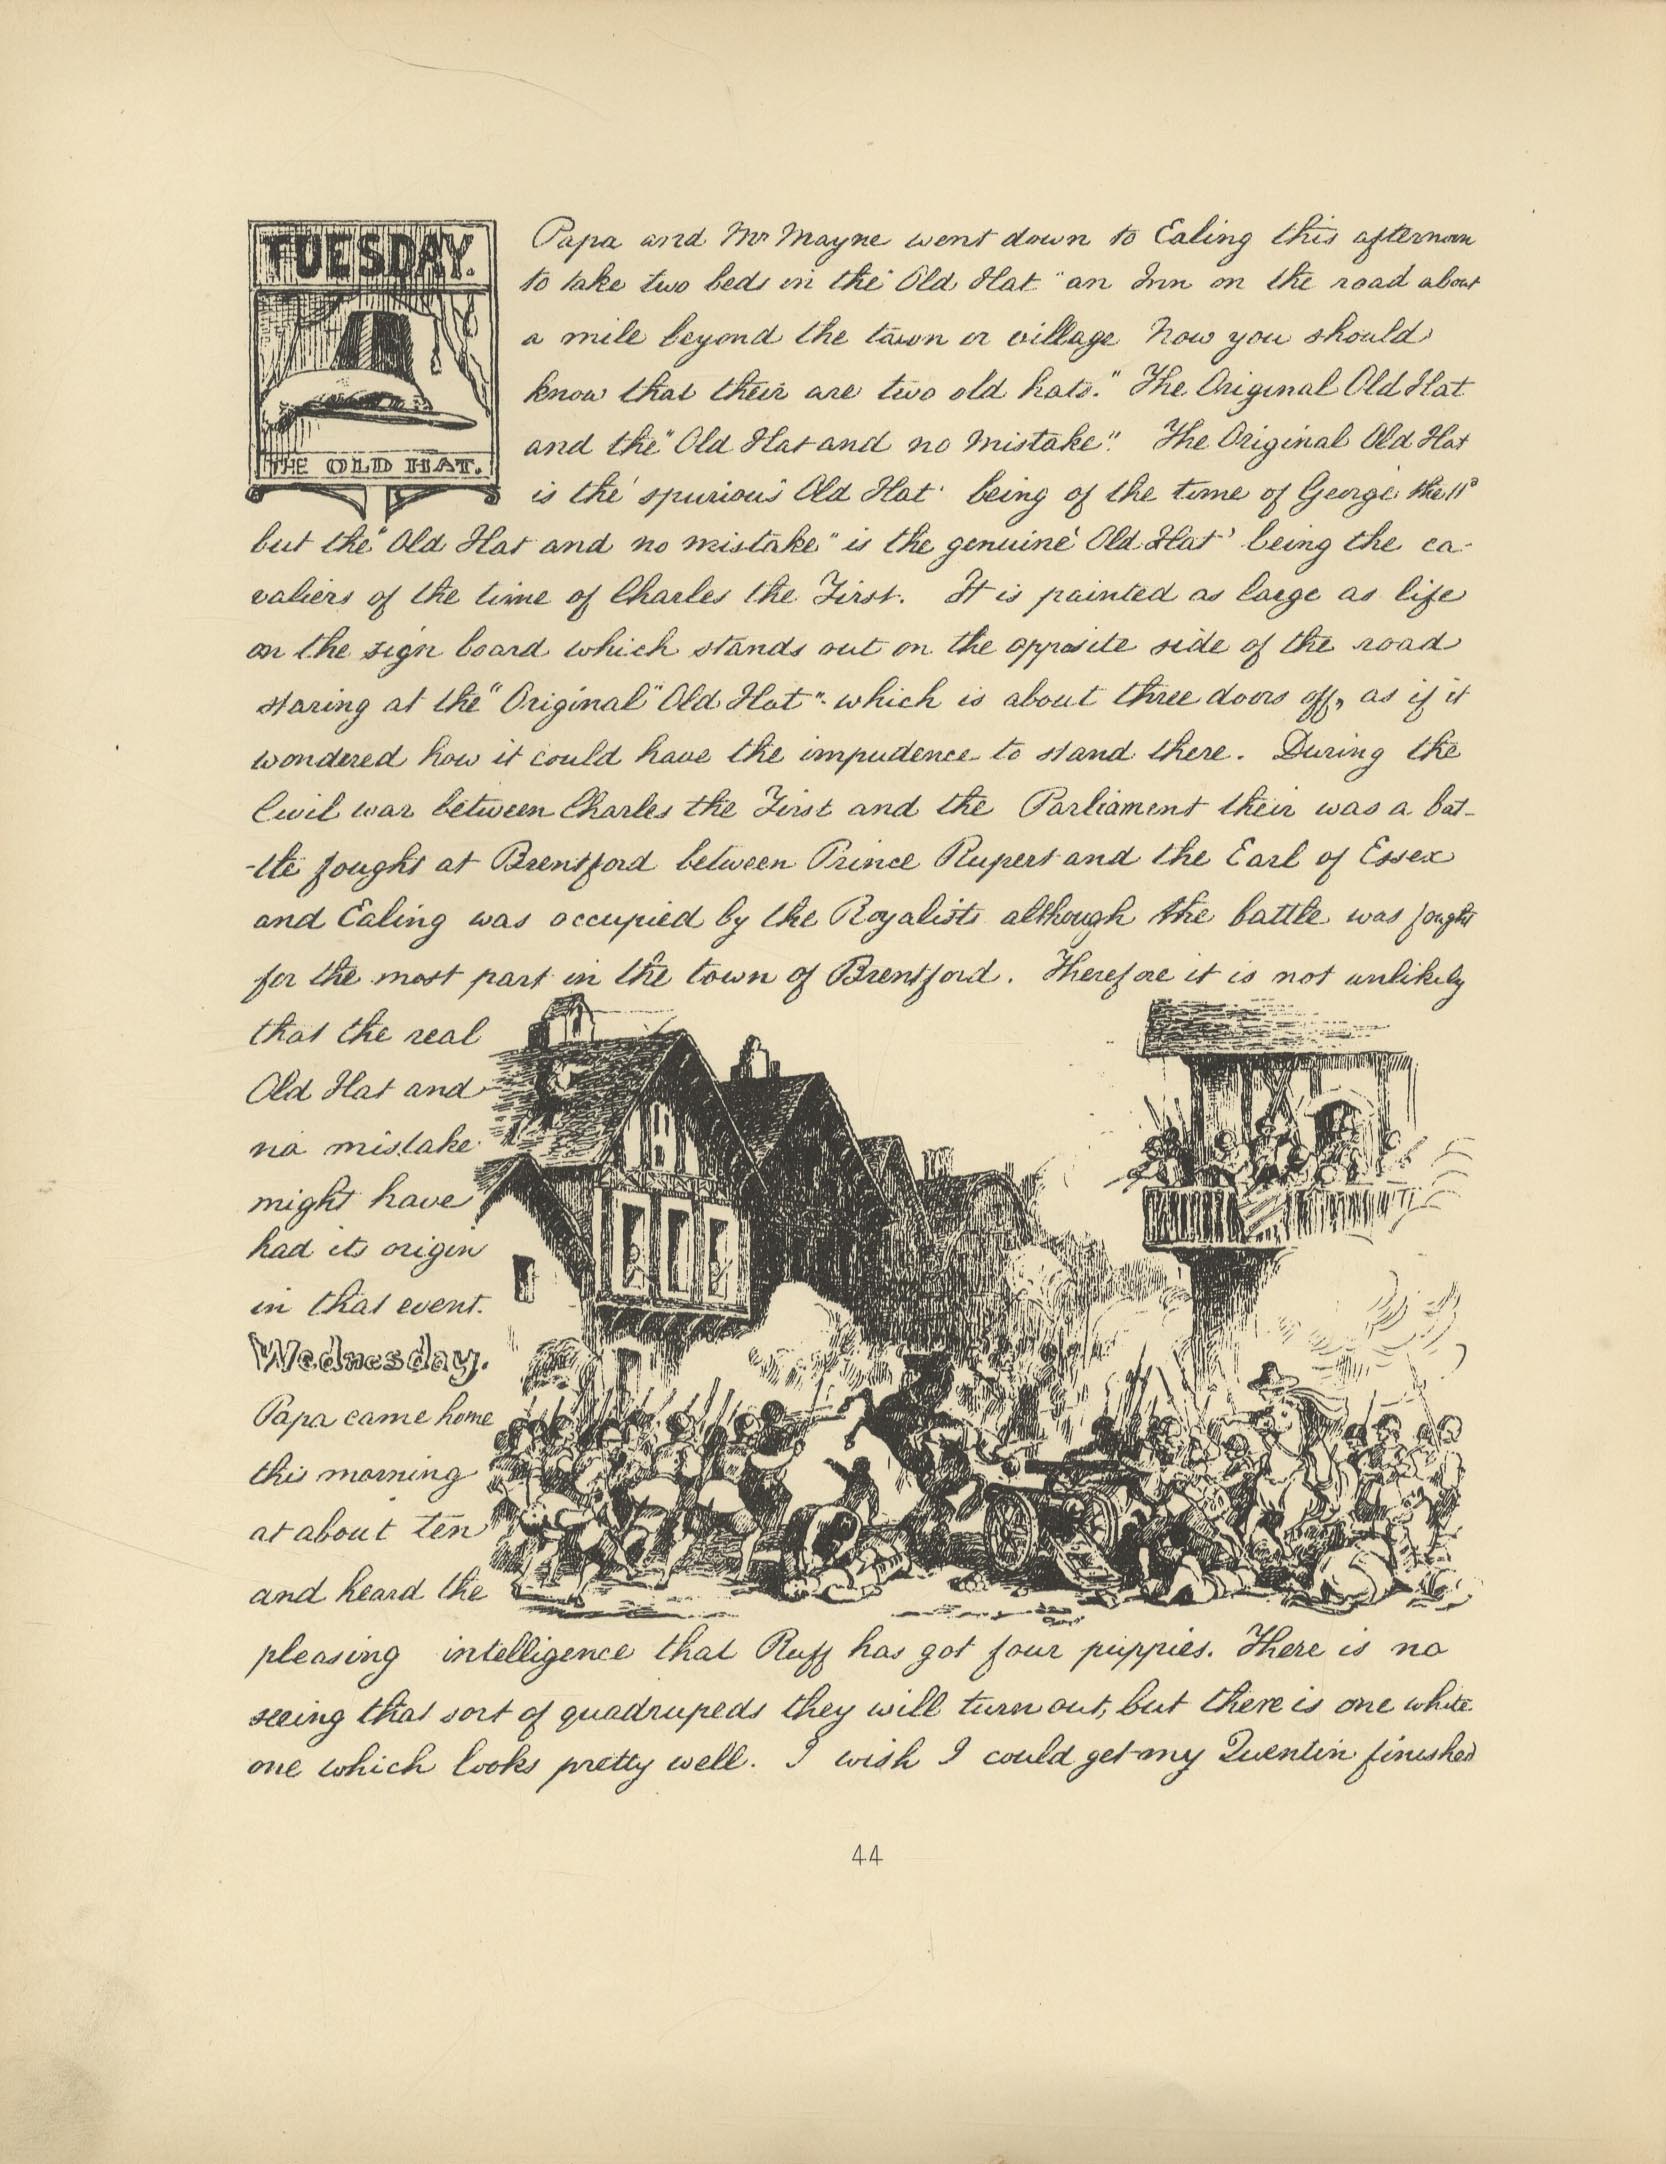 TUESDAY.
THE OLD HAT.
Papa and Mr Mayne went down to Ealing this afternoon
to take two beds in the "Old Hat" an Inn on the road about
a mile beyond the town or village Now you should
know that their are two old hats." The Original Old Hat
and the "Old Hat and no mistake". The Original Old Hat
is the 'spurious Old Hat' being of the time of George the IId
but the "Old Hat and no mistake" is the genuine 'Old Hat' being the ca-
valiers of the time of Charles the First. It is painted as large as life
on the sign board which stands out on the opposite side of the road
staring at the "Original "Old Hat". which is about three doors off, as if it
wondered how it could have the impudence to stand there. During the
Civil war between Charles the First and the Parliament their was a bat-
-tle fought at Brentford between Prince Rupert and the Earl of Essex
and Ealing was occupied by the Royalists although the battle was fought
for the most part in the town of Brentford. Therefore it is not unlikely
that the real
Old Hat and
no mistake
might have
had its origin
in that event.
Wednesday.
Papa came home
this morning
at about ten
and heard the
pleasing intelligence that Ruff has got four puppies. There is no
seeing that sort of quadrupeds they will turn out, but there is one white
one which looks pretty well. I wish I could get my Quentin finished
44